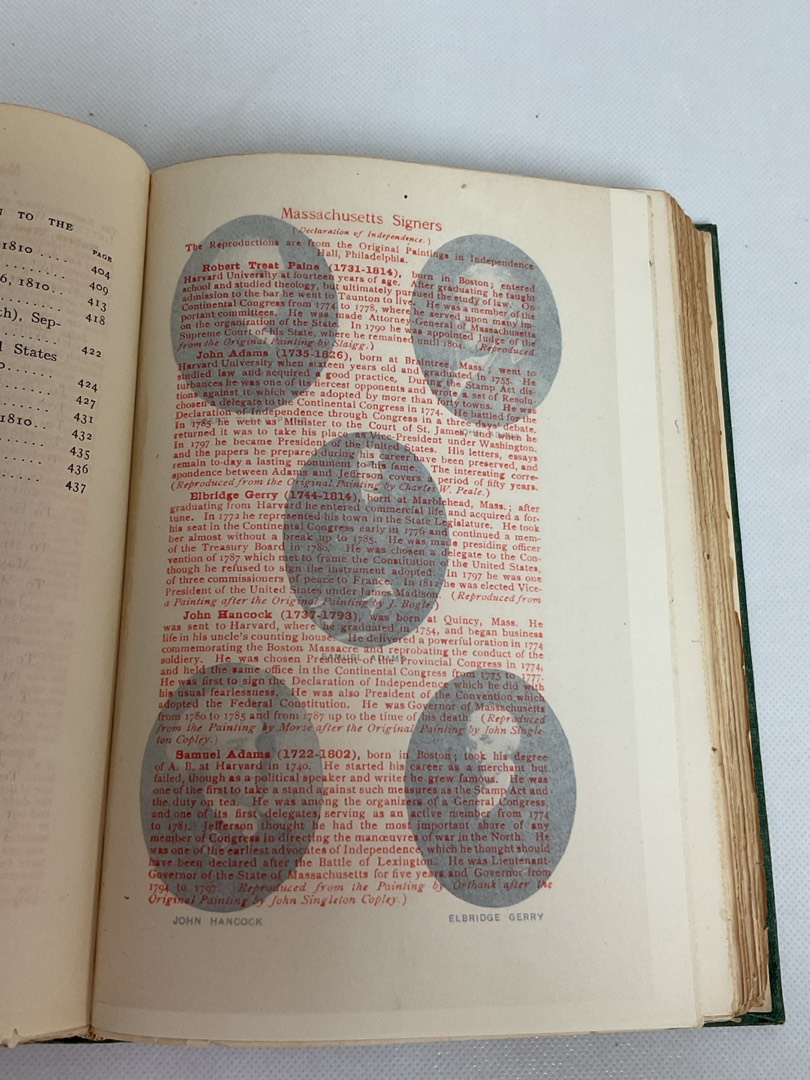 N TO THE
PAGE
1810 .... 404
........ 409
6, 1810.. 413
........ 418
th), Sep-
........ 422
d States
........ 424
........ 427
........ 431
1810.. 432
........ 435
........ 436
........ 437
Massachusetts Signers
(Declaration of Independence.)
The Reproductions are from the Original Paintings in Independence
Hall, Philadelphia.
Robert Treat Paine (1731-1814), born in Boston; entered
Harvard University at fourteen years of age. After graduating he taught
school and studied theology, but ultimately pursued the study of law. On
admission to the bar he went to Taunton to live. He was a member of the
Continental Congress from 1774 to 1778, where he served upon many im-
portant committees. He was made Attorney-General of Massachusetts
on the organization of the State. In 1790 he was appointed Judge of the
Supreme Court of his State, where he remained until 1804. (Reproduced
from the Original Painting by Slaigg.)
John Adams (1735-1826), born at Braintree, Mass.; went to
Harvard University when sixteen years old and graduated in 1755. He
studied law and acquired a good practice. During the Stamp Act dis-
turbances he was one of its fiercest opponents and wrote a set of Resolu-
tions against it which were adopted by more than forty towns. He was
chosen a delegate to the Continental Congress in 1774. He battled for the
Declaration of Independence through Congress in a three days' debate.
In 1785 he went as Minister to the Court of St. James, and when he
returned it was to take his place as Vice-President under Washington.
In 1797 he became President of the United States. His letters, essays
and the papers he prepared during his career have been preserved, and
remain to-day a lasting monument to his fame. The interesting corre-
spondence between Adams and Jefferson covers a period of fifty years.
(Reproduced from the Original Painting by Charles W. Peale.)
Elbridge Gerry (1744-1814), born at Marblehead, Mass.; after
graduating from Harvard he entered commercial life and acquired a for-
tune. In 1772 he represented his town in the State Legislature. He took
his seat in the Continental Congress early in 1776 and continued a mem-
ber almost without a break up to 1785. He was made presiding officer
of the Treasury Board in 1780. He was chosen a delegate to the Con-
vention of 1787 which met to frame the Constitution of the United States,
though he refused to sign the instrument adopted. In 1797 he was one
of three commissioners of peace to France. In 1812 he was elected Vice-
President of the United States under James Madison. (Reproduced from
a Painting after the Original Painting by J. Bogle.)
John Hancock (1737-1793), was born at Quincy, Mass. He
was sent to Harvard, where he graduated in 1754, and began business
life in his uncle's counting house. He delivered a powerful oration in 1774
commemorating the Boston Massacre and reprobating the conduct of the
soldiery. He was chosen President of a Provincial Congress in 1774,
and held the same office in the Continental Congress from 1775 to 1777.
He was first to sign the Declaration of Independence which he did with
his usual fearlessness. He was also President of the Convention which
adopted the Federal Constitution. He was Governor of Massachusetts
from 1780 to 1785 and from 1787 up to the time of his death. (Reproduced
from the Painting by Morse after the Original Painting by John Single-
ton Copley.)
Samuel Adams (1722-1802), born in Boston; took his degree
of A. B. at Harvard in 1740. He started his career as a merchant but
failed, though as a political speaker and writer he grew famous. He was
one of the first to take a stand against such measures as the Stamp Act and
the duty on tea. He was among the organizers of a General Congress,
and one of its first delegates, serving as an active member from 1774
to 1781. Jefferson thought he had the most important share of any
member of Congress in directing the manœuvres of war in the North. He
was one of the earliest advocates of Independence, which he thought should
have been declared after the Battle of Lexington. He was Lieutenant-
Governor of the State of Massachusetts for five years and Governor from
1794 to 1797. (Reproduced from the Painting by Orthank after the
Original Painting by John Singleton Copley.)
SAMUEL ADAMS
JOHN HANCOCK
ELBRIDGE GERRY